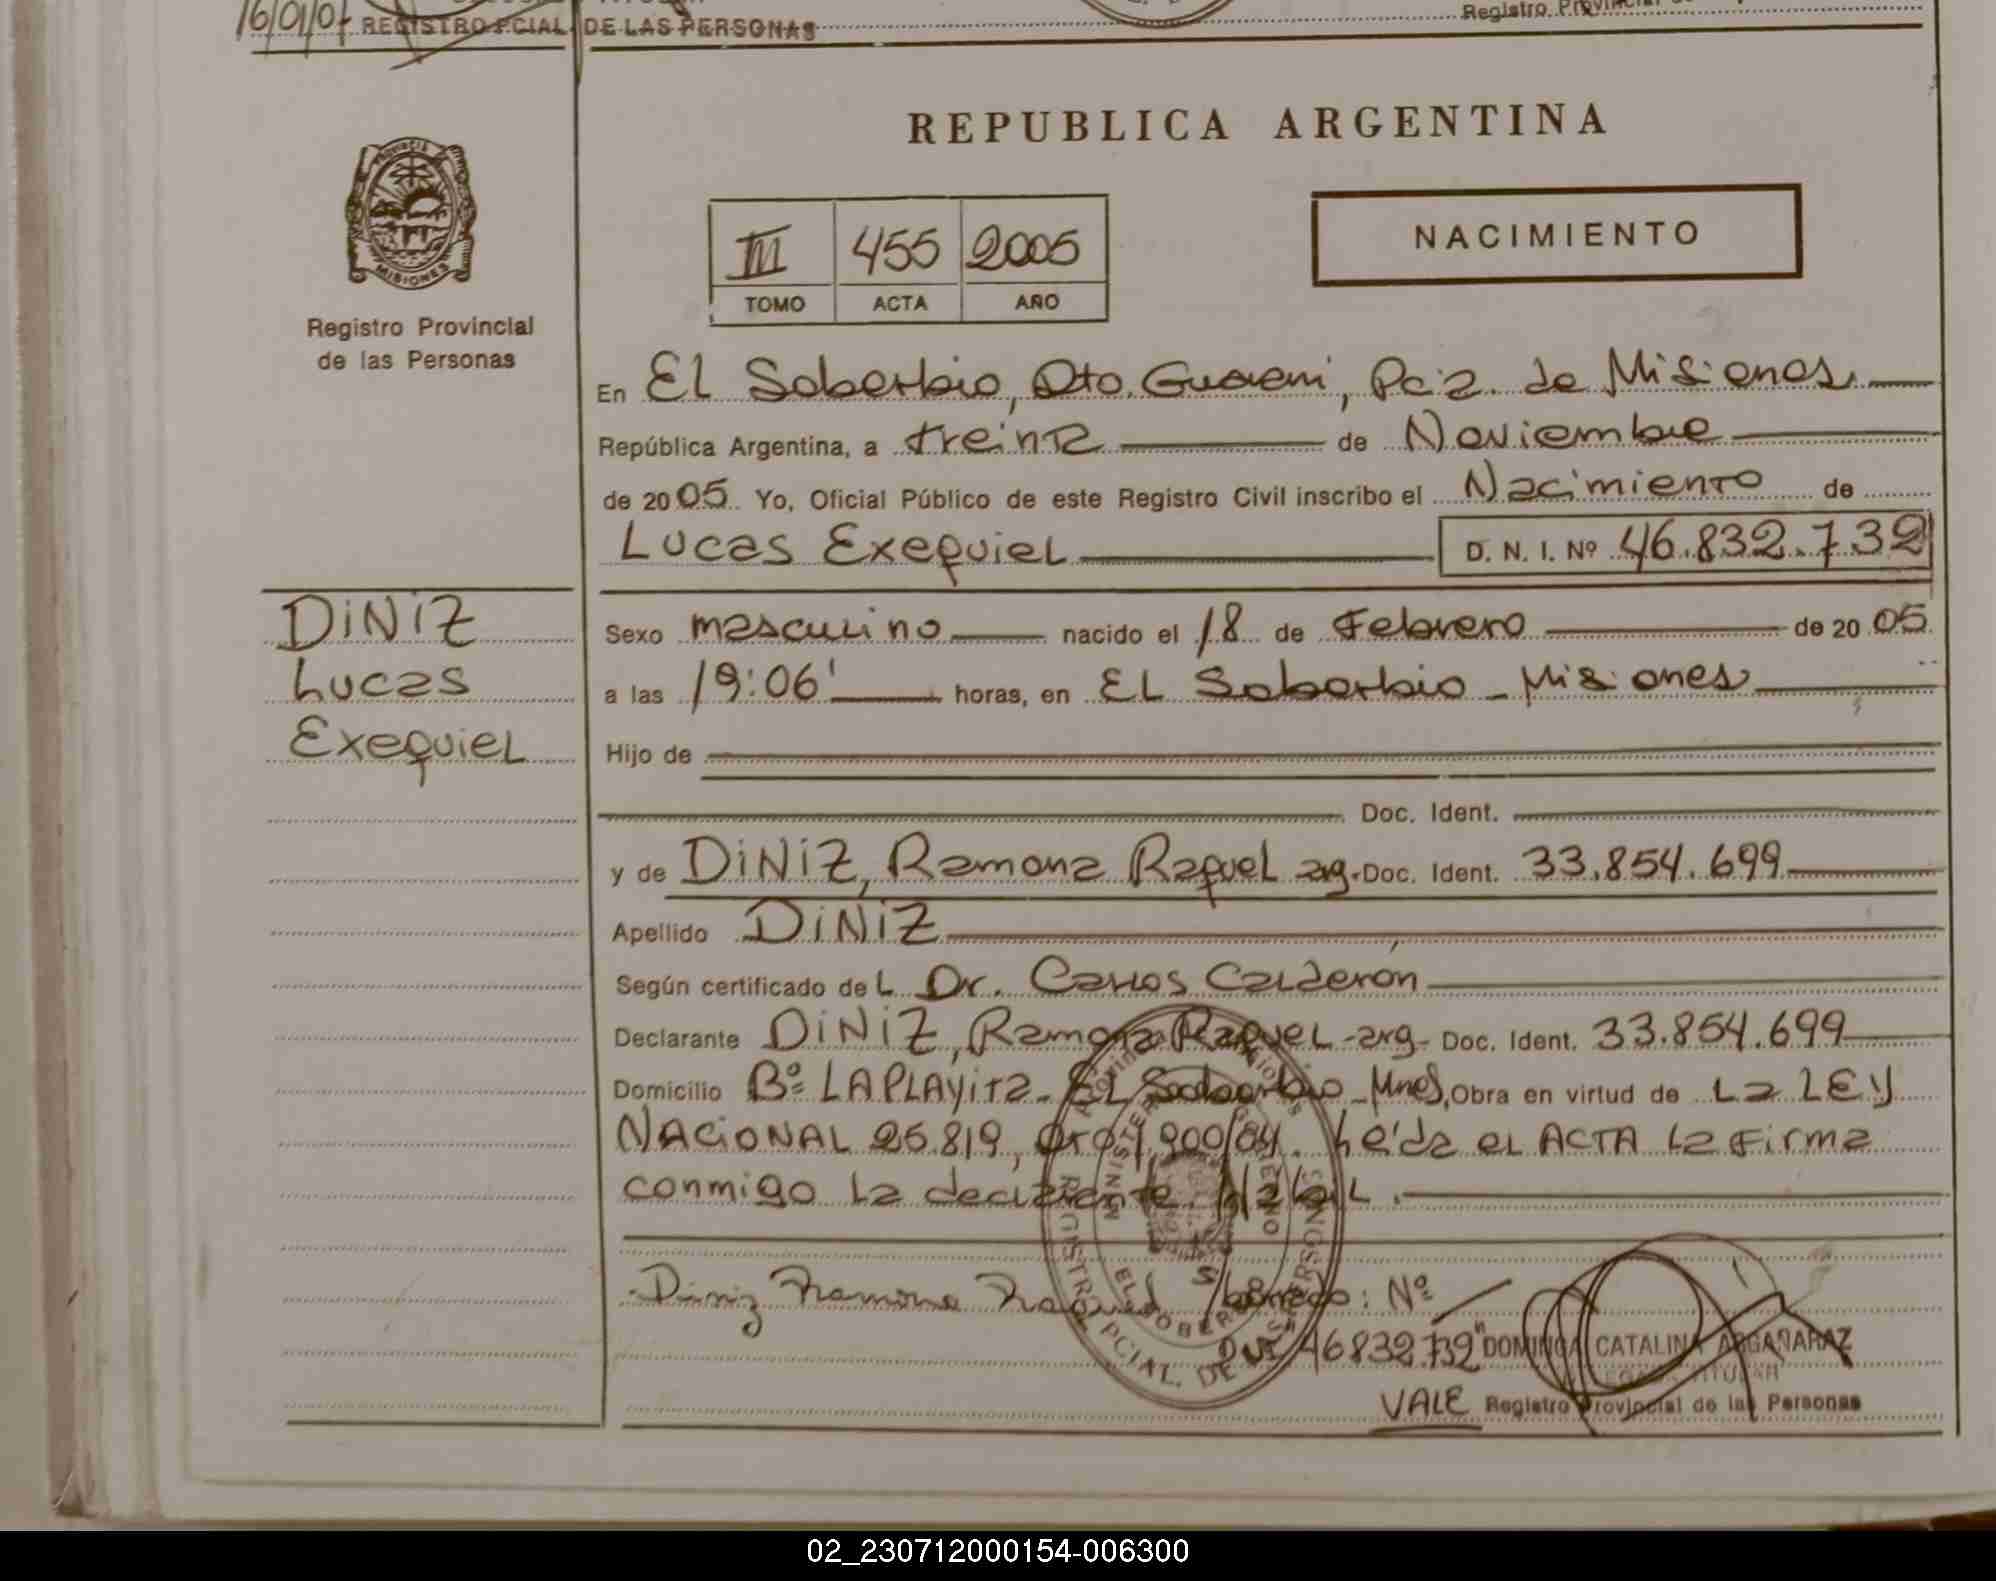 16/01/07 REGISTRO PCIAL. DE LAS PERSONAS
Registro Provincial
REPUBLICA ARGENTINA
PROVINCIA DE
MISIONES
Registro Provincial
de las Personas
III 455 2005
TOMO ACTA AÑO
NACIMIENTO
En El Soberbio, Dto. Guarani, Pcia. de Misiones.
República Argentina, a treinta de Noviembre
de 2005. Yo, Oficial Público de este Registro Civil inscribo el Nacimiento de
Lucas Exequiel D. N. I. Nº 46.832.732
DINIZ
Lucas
Exequiel
Sexo masculino nacido el 18 de Febrero de 2005.
a las 19:06' horas, en El Soberbio - Misiones
Hijo de
Doc. Ident.
y de DINIZ, Ramona Raquel arg. Doc. Ident. 33.854.699
Apellido DINIZ
Según certificado del Dr. Carlos Calderón
Declarante DINIZ, Ramona Raquel - arg - Doc. Ident. 33.854.699
Domicilio Bº LA PLAYITA - El Soberbio - Mnes, Obra en virtud de La LEY
NACIONAL 25.819, Dto 1.900/04. Leída el ACTA La Firma
conmigo La declarante.
Diniz Ramona Raquel S/borrado: Nº
DNI 46832732" DOMINGA CATALINA ARGAÑARAZ
TITULAR
VALE Registro Provincial de las Personas
REGISTRO PCIAL. DE LAS PERSONAS
02_230712000154-006300